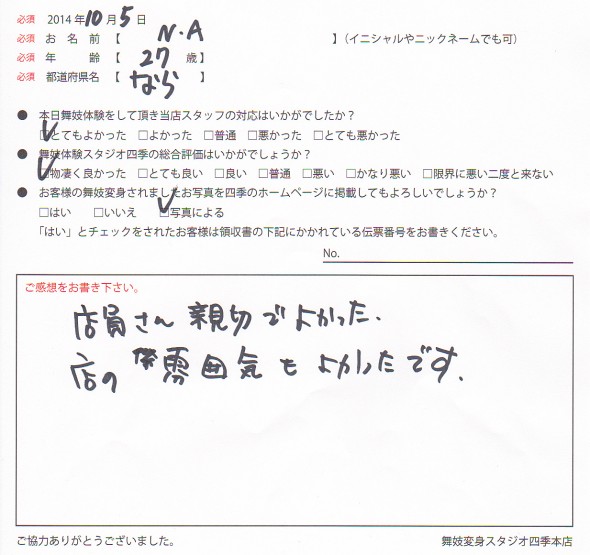 必須 2014年10月5日
必須 お名前【 N.A 】(イニシャルやニックネームでも可)
必須 年齢【 27 歳】
必須 都道府県名【 なら 】
● 本日舞妓体験をして頂き当店スタッフの対応はいかがでしたか？
☑とてもよかった □よかった □普通 □悪かった □とても悪かった
● 舞妓体験スタジオ四季の総合評価はいかがでしょうか？
☑物凄く良かった □とても良い □良い □普通 □悪い □かなり悪い □限界に悪い二度と来ない
● お客様の舞妓変身されましたお写真を四季のホームページに掲載してもよろしいでしょうか？
□はい □いいえ ☑写真による
「はい」とチェックをされたお客様は領収書の下記にかかれている伝票番号をお書きください。
No.
ご感想をお書き下さい。
店員さん 親切でよかった.
店の 雰囲気も よかったです.
ご協力ありがとうございました。
舞妓変身スタジオ四季本店